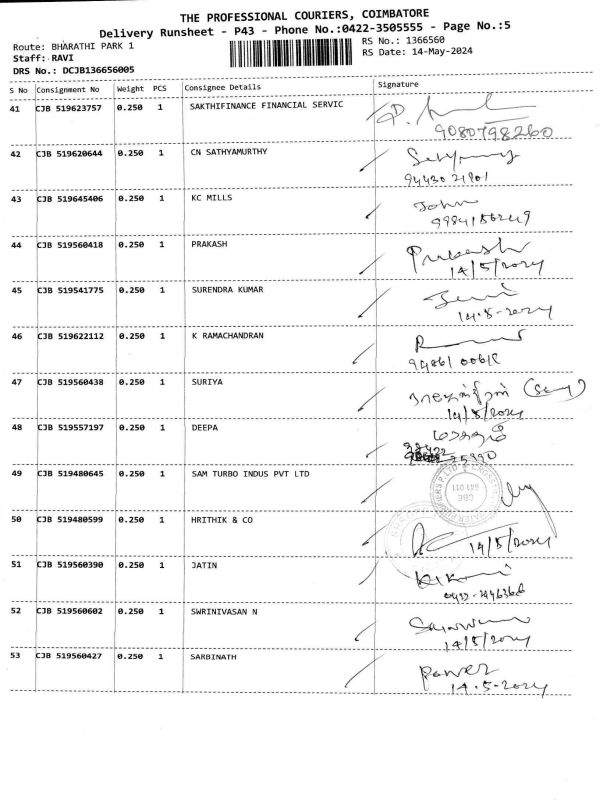 THE PROFESSIONAL COURIERS, COIMBATORE
Delivery Runsheet - P43 - Phone No.:0422-3505555 - Page No.:5
Route: BHARATHI PARK 1
RS No.: 1366560
Staff: RAVI
RS Date: 14-May-2024
DRS No.: DCJB136656005
S No Consignment No Weight PCS Consignee Details Signature
41 CJB 519623757 0.250 1 SAKTHIFINANCE FINANCIAL SERVIC
9080798260
42 CJB 519620644 0.250 1 CN SATHYAMURTHY
43 CJB 519645406 0.250 1 KC MILLS John
44 CJB 519560418 0.250 1 PRAKASH Prakash
14/5/2024
45 CJB 519541775 0.250 1 SURENDRA KUMAR
14.5-2024
46 CJB 519622112 0.250 1 K RAMACHANDRAN
47 CJB 519560438 0.250 1 SURIYA
14/5/2024
48 CJB 519557197 0.250 1 DEEPA
49 CJB 519480645 0.250 1 SAM TURBO INDUS PVT LTD
CBE
641 011
50 CJB 519480599 0.250 1 HRITHIK & CO
14/5/2024
51 CJB 519560390 0.250 1 JATIN
52 CJB 519560602 0.250 1 SWRINIVASAN N
14/5/2024
53 CJB 519560427 0.250 1 SARBINATH
14.5-2024